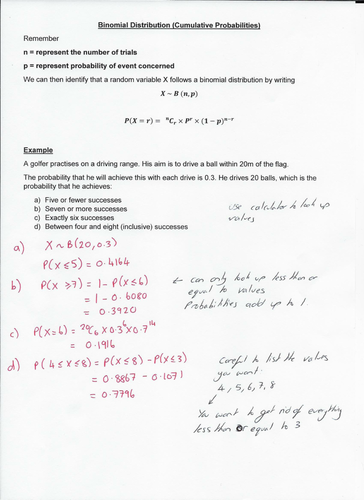 Binomial Distribution (Cumulative Probabilities)
Remember
n = represent the number of trials
p = represent probability of event concerned
We can then identify that a random variable X follows a binomial distribution by writing
X ~ B (n, p)
P(X = r) = ⁿCᵣ × Pʳ × (1 − p)ⁿ⁻ʳ
Example
A golfer practises on a driving range. His aim is to drive a ball within 20m of the flag.
The probability that he will achieve this with each drive is 0.3. He drives 20 balls, which is the
probability that he achieves:
a) Five or fewer successes
b) Seven or more successes
c) Exactly six successes
d) Between four and eight (inclusive) successes
use calculator to look up
values
a) X ~ B(20, 0.3)
P(X ≤ 5) = 0.4164
b) P(X ≥ 7) = 1 - P(X ≤ 6)
= 1 - 0.6080
= 0.3920
← can only look up less than or
equal to values
Probabilities add up to 1
c) P(X = 6) = ²⁰C₆ × 0.3⁶ × 0.7¹⁴
= 0.1916
d) P(4 ≤ X ≤ 8) = P(X ≤ 8) - P(X ≤ 3)
= 0.8867 - 0.1071
= 0.7796
Careful to list the values
you want
4, 5, 6, 7, 8
↓
You want to get rid of everything
less than or equal to 3